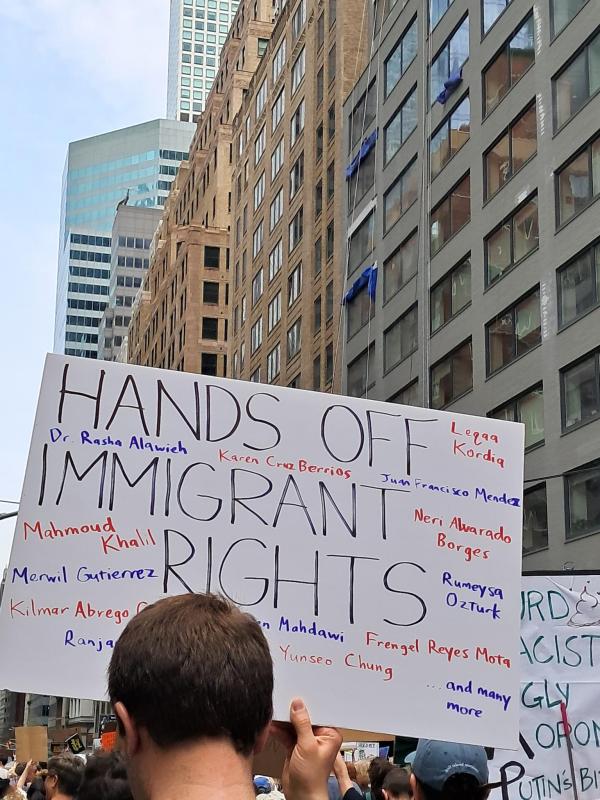 HANDS OFF
Leqaa
Kordia
Dr. Rasha Alawieh
Karen Cruz Berrios
Juan Francisco Mendez
IMMIGRANT
Neri Alvarado
Borges
Mahmoud
Khalil
RIGHTS
Merwil Gutierrez
Rumeysa
Ozturk
Kilmar Abrego
Mahdawi
Frengel Reyes Mota
Ranja
Yunseo Chung
...and many
more
URD
ACIST
GLY
OPON
PUTIN'S BI